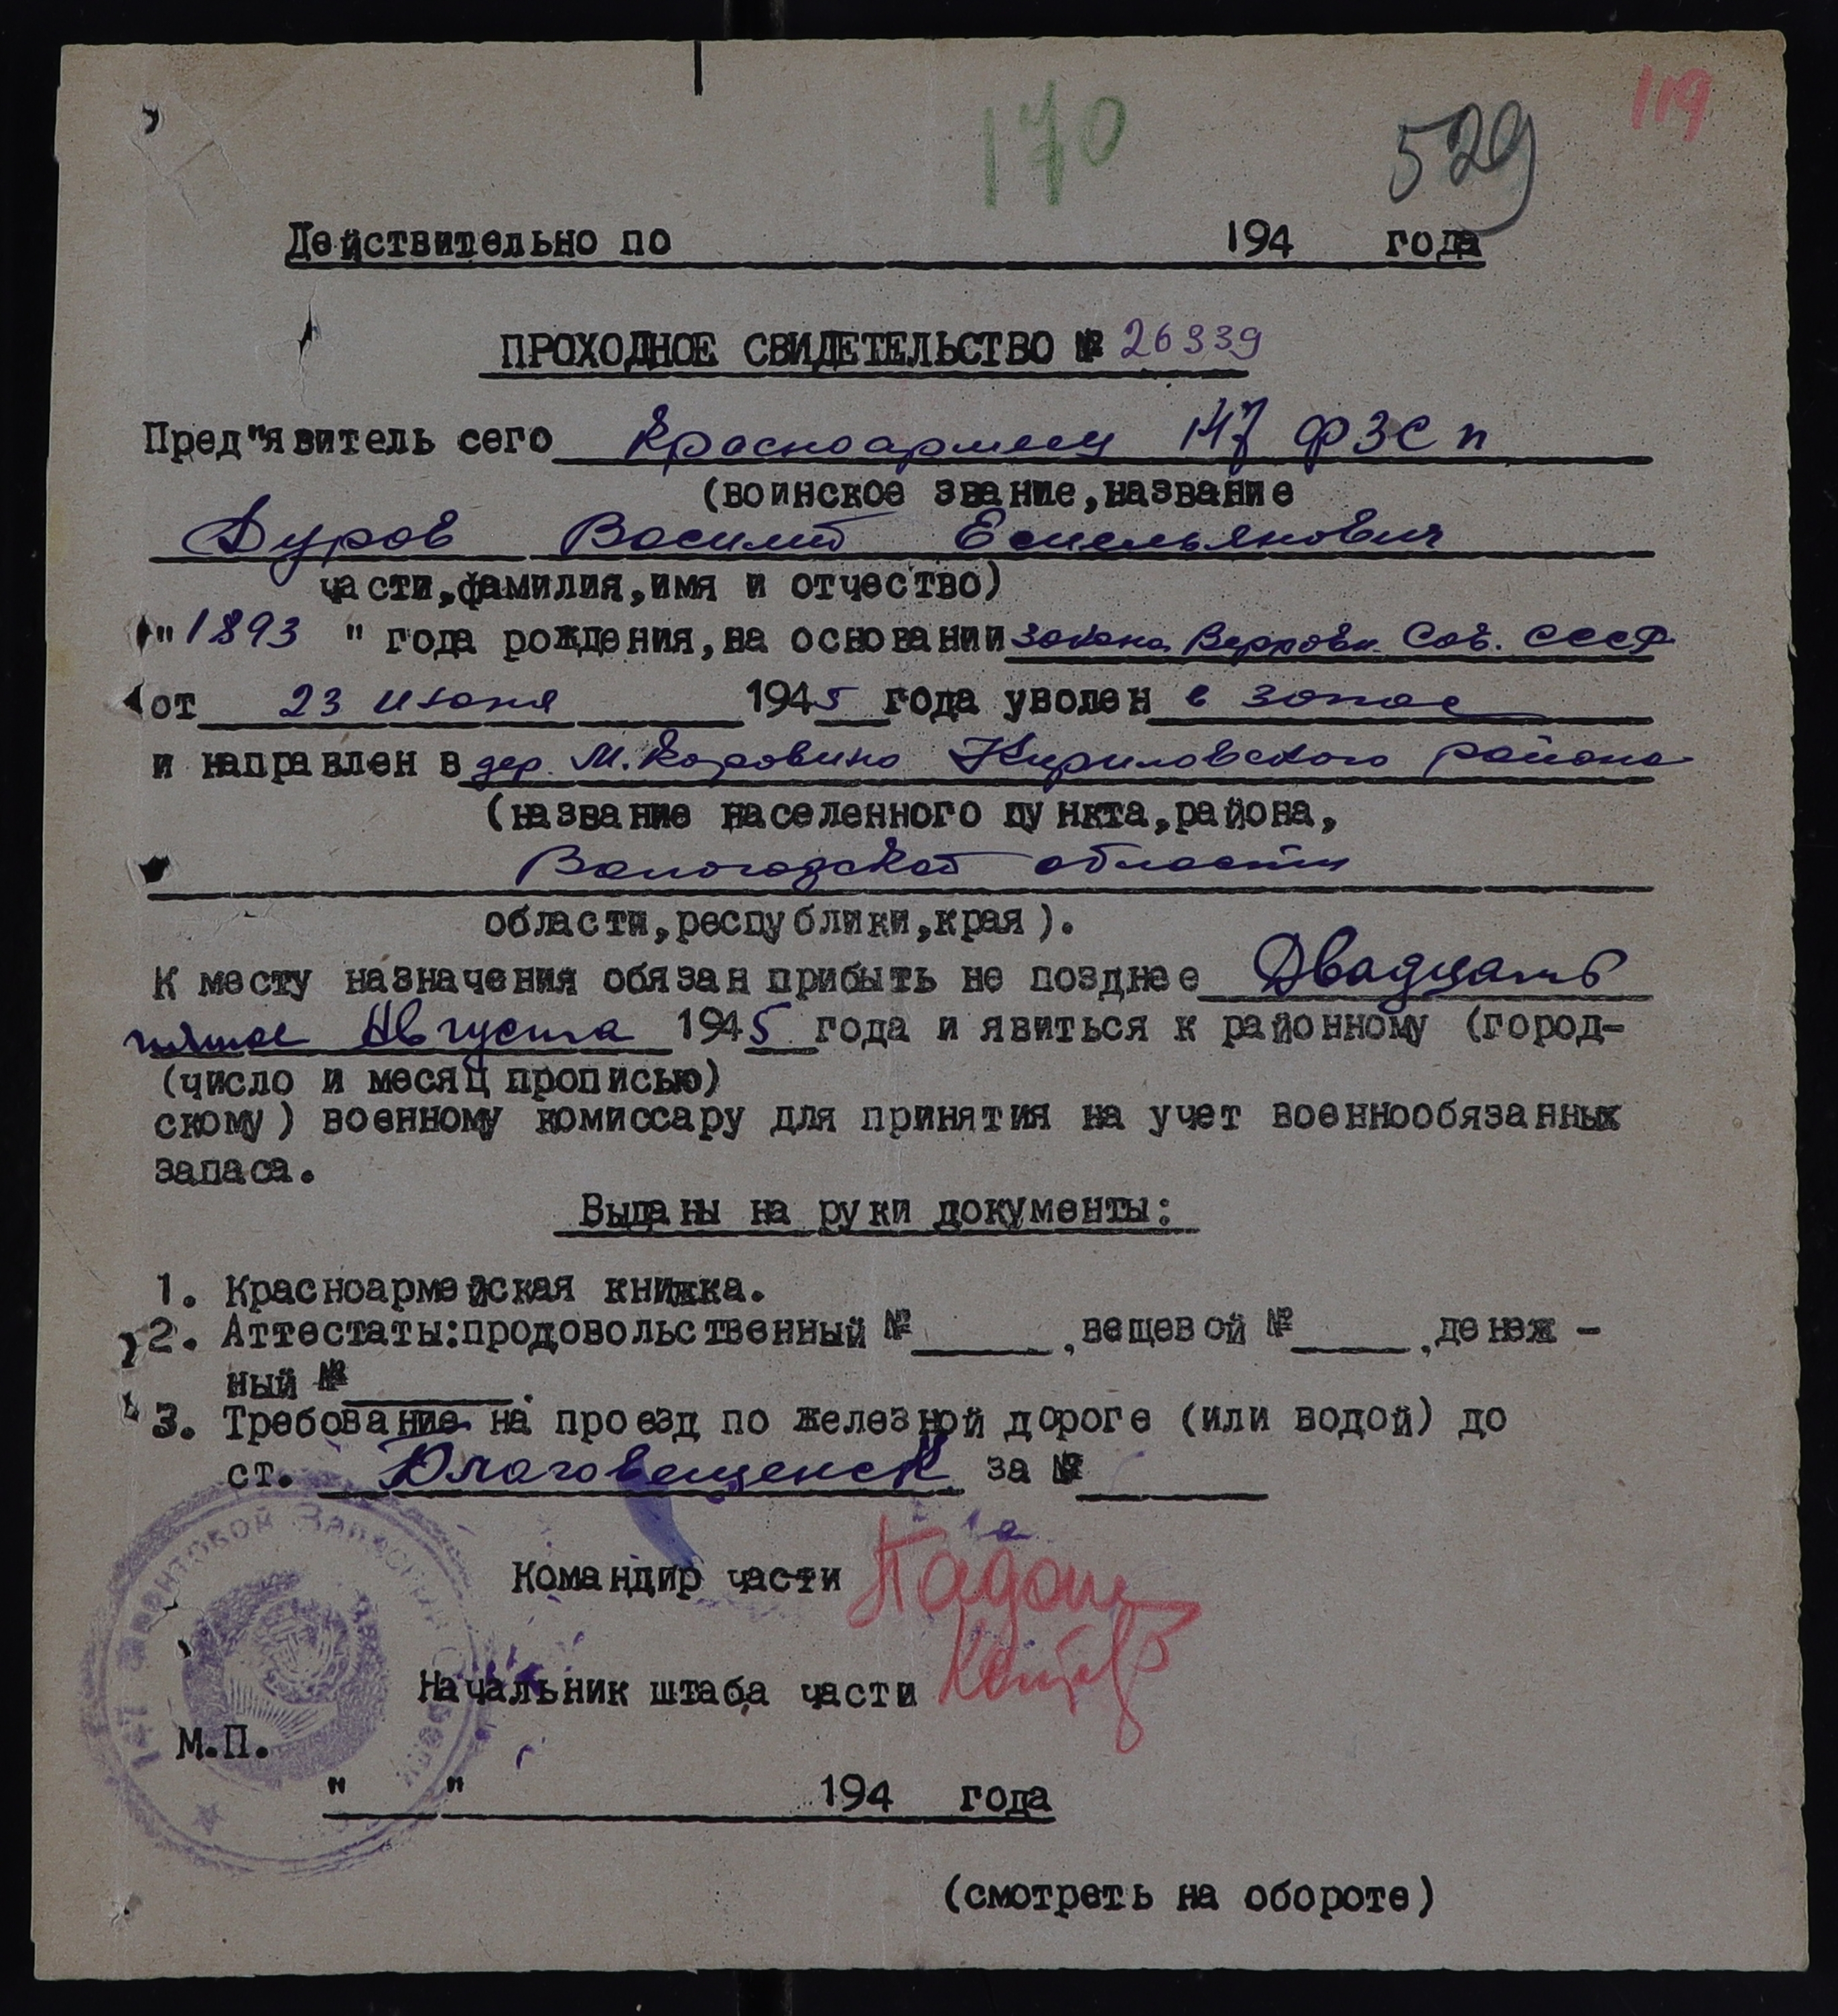 119
170
529
Действительно по 194 года
ПРОХОДНОЕ СВИДЕТЕЛЬСТВО № 26339
Пред"явитель сего Красноармеец 147 ФЗСП
(воинское звание, название
Дуров Василий Емельянович
части, фамилия, имя и отчество)
"1893" года рождения, на основании закона Верховн. Сов. СССР
от 23 июня 1945 года уволен в запас
и направлен в дер. М. Коровино Кириловского района
(название населенного пункта, района,
Вологодской области
области, республики, края).
К месту назначения обязан прибыть не позднее Двадцать
пятое Августа 1945 года и явиться к районному (город-
(число и месяц прописью)
скому) военному комиссару для принятия на учет военнообязанных
запаса.
Выданы на руки документы:
1. Красноармейская книжка.
2. Аттестаты: продовольственный № , вещевой № , денеж-
ный № .
3. Требование на проезд по железной дороге (или водой) до
ст. Благовещенск за №
Командир части
Начальник штаба части
147 Фронтовой Запасный
М.П.
" " 194 года
(смотреть на обороте)